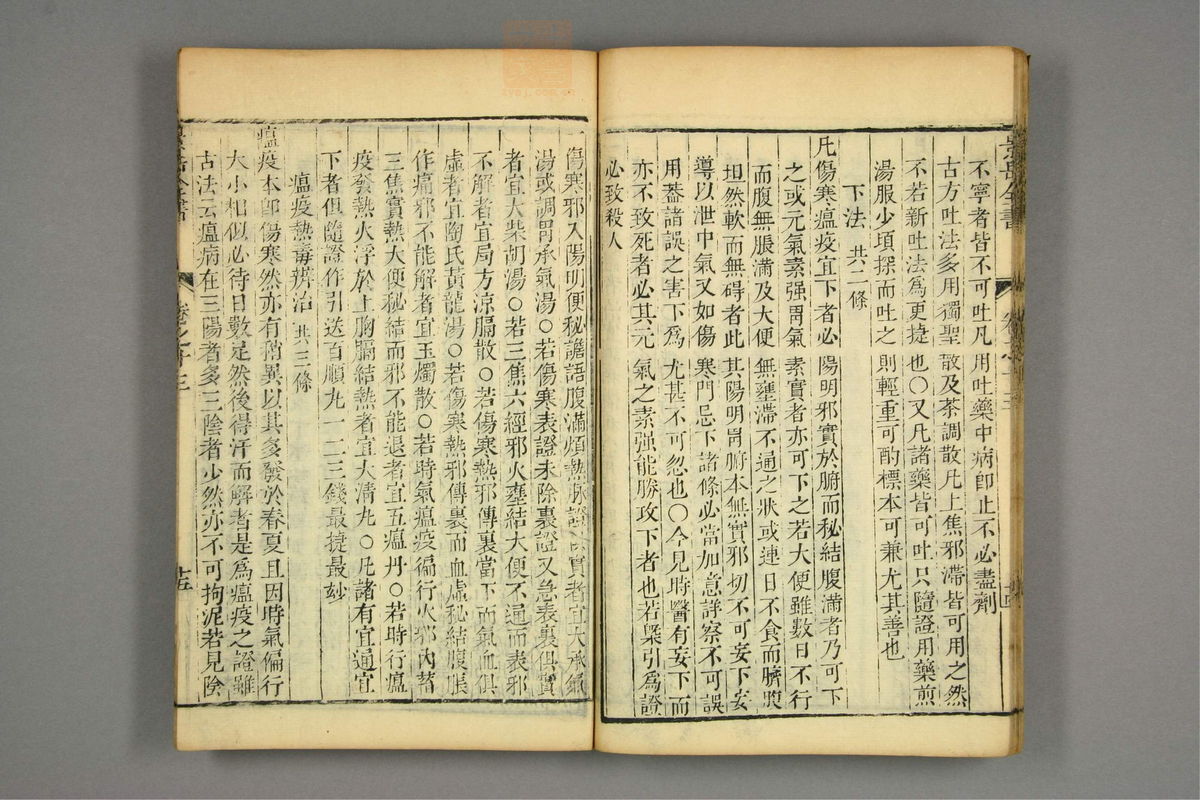 不寧者皆不可吐凡用吐藥中病卽止不必盡劑
古方吐法多用獨聖散及茶調散凡上焦邪滯皆可用之然
不若新吐法爲更捷也○又凡諸藥皆可吐只隨證用藥煎
湯服少頃探而吐之則輕重可酌標本可兼尤其善也
下法 共二條
凡傷寒瘟疫宜下者必陽明邪實於腑而秘結腹滿者乃可下
之或元氣素强胃氣素實者亦可下之若大便雖數日不行
而腹無脹滿及大便無壅滯不通之狀或連日不食而臍腹
坦然軟而無碍者此其陽明胃腑本無實邪切不可妄下妄
導以泄中氣又如傷寒門忌下諸條必當加意詳察不可誤
用葢諸誤之害下爲尤甚不可忽也○今見時醫有妄下而
亦不致死者必其元氣之素强能勝攻下者也若槩引爲證
必致殺人
一傷寒邪入陽明便秘譫語腹滿煩熱脉證實者宜大承氣
湯或調胃承氣湯○若傷寒表證未除裏證又急表裏俱實
者宜大柴胡湯○若三焦六經邪火壅結大便不通而表邪
不解者宜局方涼膈散○若傷寒熱邪傳裏當下而氣血俱
虛者宜陶氏黃龍湯○若傷寒熱邪傳裏而血虛秘結腹脹
作痛邪不能解者宜玉燭散○若時氣瘟疫徧行火邪內蓄
三焦實熱大便秘結而邪不能退者宜五瘟丹○若時行瘟
疫發熱火浮於上胸膈結熱者宜大清丸○凡諸有宜通宜
下者俱隨證作引送百順丸一二三錢最捷最妙
瘟疫熱毒辨治 共三條
瘟疫本卽傷寒然亦有稍異以其多發於春夏且因時氣徧行
大小相似必待日數足然後得汗而解者是爲瘟疫之證雖
古法云瘟病在三陽者多三陰者少然亦不可拘泥若見陰
景岳全書
卷之十三
十五